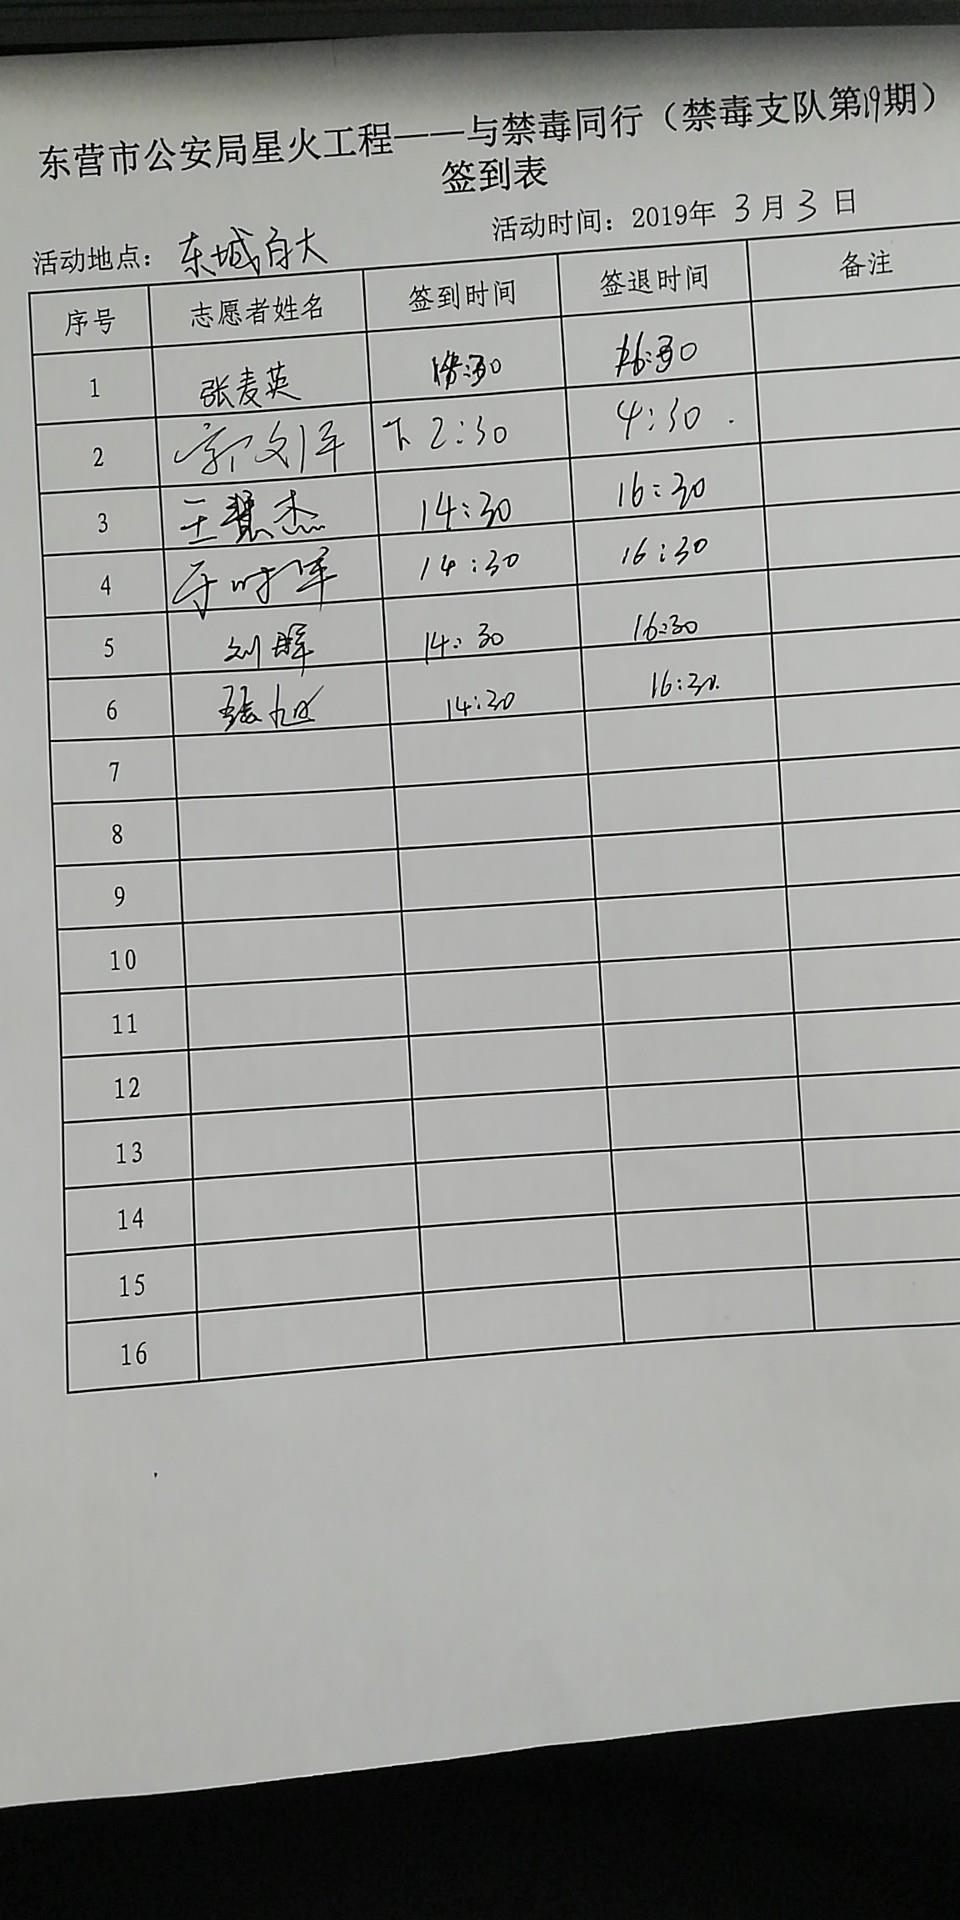 东营市公安局星火工程——与禁毒同行（禁毒支队第19期）
签到表
活动地点：东城百大 活动时间：2019年 3月3日
序号 志愿者姓名 签到时间 签退时间 备注
1 张麦英 :30 16:30
2 下2:30 4:30
3 王慧杰 14:30 16:30
4 14:30 16:30
5 刘晖 14:30 16:30
6 张旭 14:30 16:30
7
8
9
10
11
12
13
14
15
16